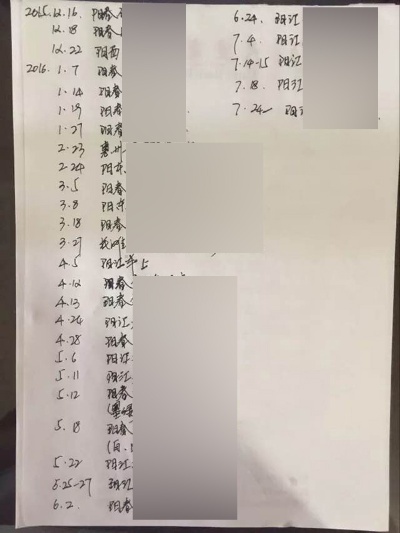 2015.12.16. 阳春
12.18 阳春
12.22 阳西
2016. 1.7 阳春
1.14 阳春
1.19 阳春
1.27 阳春
2.23 惠州
2.24 阳东
3.5 阳春
3.8 阳东
3.18 阳春
3.27
4.5 阳江
4.12 阳春
4.13 阳春
4.24 阳江
4.28 阳春
5.6 阳江
5.11 阳江
5.12 阳春
5.18 阳春
5.22 阳江
5.25-27 阳江
6.2. 阳春
6.24. 阳江
7.4. 阳江
7.14-15 阳江
7.18. 阳江
7.24 阳江